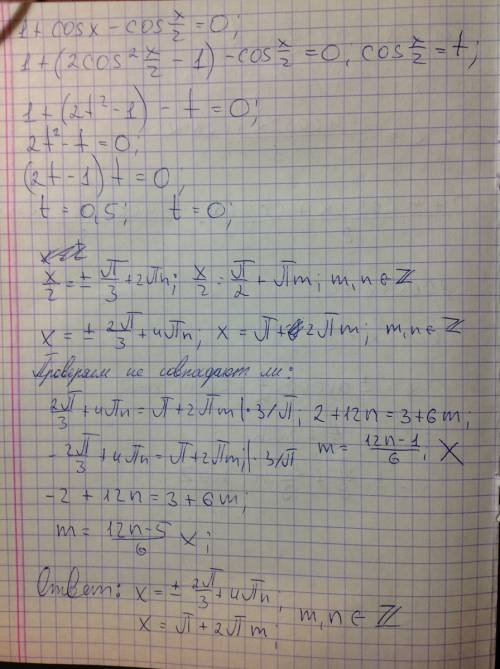 1 + cos x - cos x/2 = 0;
1 + (2cos² x/2 - 1) - cos x/2 = 0, cos x/2 = t;
1 + (2t² - 1) - t = 0;
2t² - t = 0;
(2t - 1) t = 0;
t = 0,5; t = 0;
x/2 = ± π/3 + 2πn; x/2 = π/2 + πm; m, n ∈ ℤ
x = ± 2π/3 + 4πn; x = π + 2πm; m, n ∈ ℤ
Проверяем не совпадают ли:
2π/3 + 4πn = π + 2πm |· 3/π; 2 + 12n = 3 + 6m;
- 2π/3 + 4πn = π + 2πm; |· 3/π m = (12n - 1)/6; X
-2 + 12n = 3 + 6m;
m = (12n - 5)/6 X;
Ответ: x = ± 2π/3 + 4πn;
x = π + 2πm; m, n ∈ ℤ